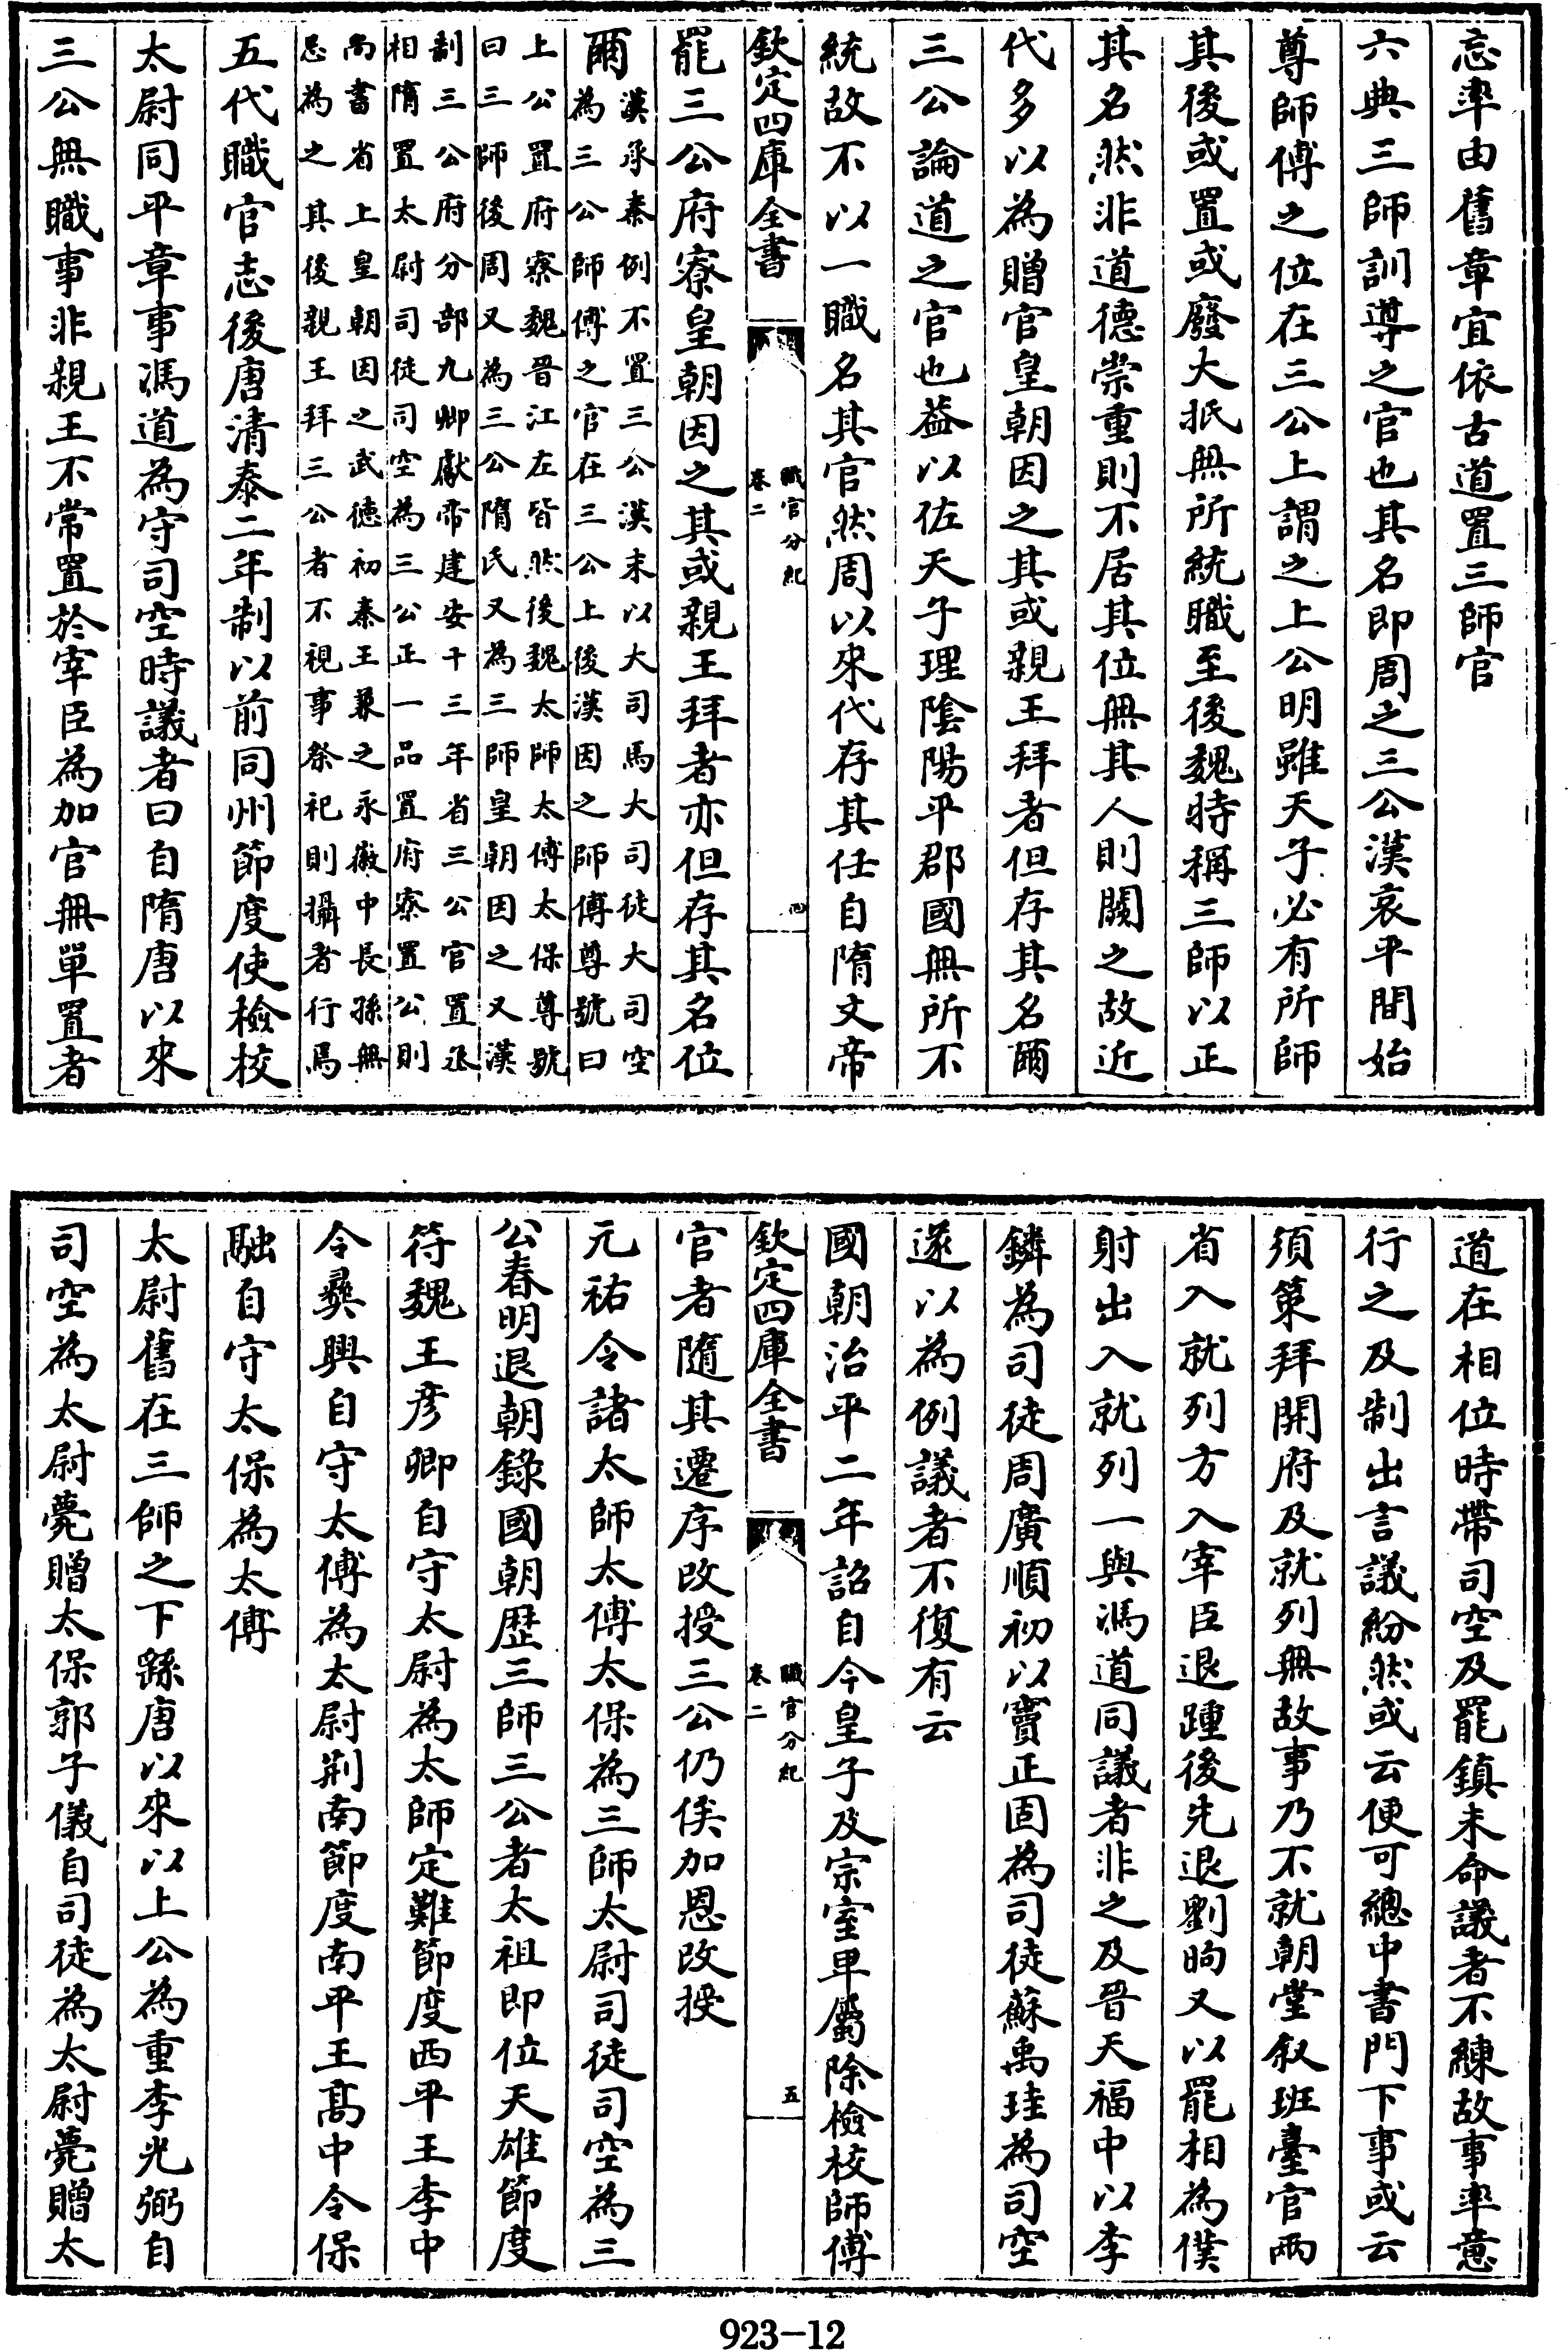 忘率由舊章宜依古道置三師官
六典三師訓導之官也其名即周之三公漢哀平間始
尊師傅之位在三公上謂之上公明雖天子必有所師
其後或置或廢大抵無所統職至後魏時稱三師以正
其名然非道德崇重則不居其位無其人則闕之故近
代多以為贈官皇朝因之其或親王拜者但存其名爾
三公論道之官也葢以佐天子理陰陽平郡國無所不
統故不以一職名其官然周以來代存其任自隋文帝
欽定四庫全書
職官分紀
卷二
四
罷三公府寮皇朝因之其或親王拜者亦但存其名位
爾
漢承秦例不置三公漢末以大司馬大司徒大司空
為三公師傅之官在三公上後漢因之師傅尊號曰
上公置府寮魏晉江左皆然後魏太師太傅太保尊號
曰三師後周又為三公隋氏又為三師皇朝因之又漢
制三公府分部九卿獻帝建安十三年省三公官置丞
相隋置太尉司徒司空為三公正一品置府寮置公則
尚書省上皇朝因之武德初秦王兼之永徽中長孫無
忌為之其後親王拜三公者不視事祭祀則攝者行焉
五代職官志後唐清泰二年制以前同州節度使檢校
太尉同平章事馮道為守司空時議者曰自隋唐以來
三公無職事非親王不常置於宰臣為加官無單置者
道在相位時帶司空及罷鎮未命議者不練故事率意
行之及制出言議紛然或云便可總中書門下事或云
須策拜開府及就列無故事乃不就朝堂叙班臺官兩
省入就列方入宰臣退踵後先退劉昫又以罷相為僕
射出入就列一與馮道同議者非之及晉天福中以李
鏻為司徒周廣順初以竇正固為司徒蘇禹珪為司空
遂以為例議者不復有云
國朝治平二年詔自今皇子及宗室卑屬除檢校師傅
欽定四庫全書
職官分紀
卷二
五
官者隨其遷序改授三公仍俟加恩改授
元祐令諸太師太傅太保為三師太尉司徒司空為三
公春明退朝錄國朝歴三師三公者太祖即位天雄節度
符魏王彦卿自守太尉為太師定難節度西平王李中
令彝興自守太傅為太尉荆南節度南平王髙中令保
融自守太保為太傅
太尉舊在三師之下繇唐以來以上公為重李光弼自
司空為太尉薨贈太保郭子儀自司徒為太尉薨贈太
923-12